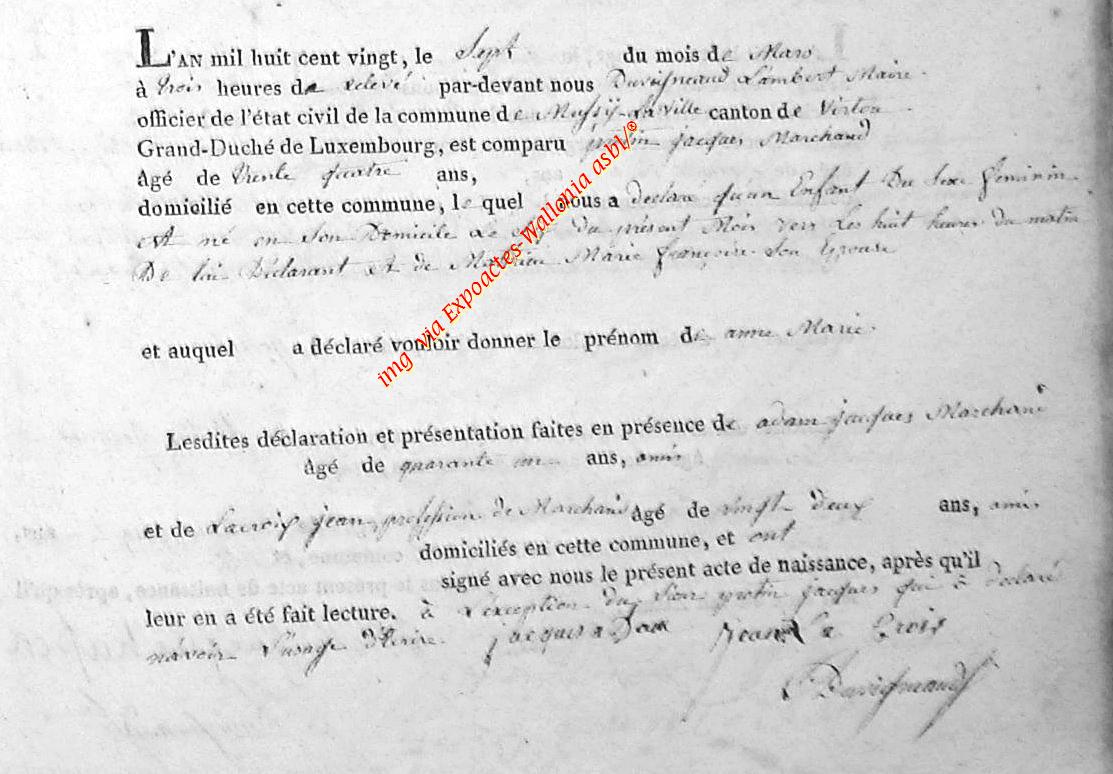 L'AN mil huit cent vingt, le Sept du mois de Mars
à trois heures de relevé par-devant nous Duvigneaud Lambert Maire
officier de l'état civil de la commune de Mussy-la ville canton de Virton
Grand-Duché de Luxembourg, est comparu jacques Marchand
Agé de trente quatre ans,
domicilié en cette commune, le quel nous a déclaré qu'un Enfant Du Sexe feminin
est né en Son Domicile le du présent Mois vers les huit heures du matin
De lui Déclarant et de Mathieu Marie françoise Son Epouse
et auquel a déclaré vouloir donner le prénom de anne Marie
Lesdites déclaration et présentation faites en présence de adam jacques Marchand
âgé de quarante un ans, amis
et de Lacroix jean profession de Marchand Agé de vingt Deux ans, amis
domiciliés en cette commune, et ont
signé avec nous le présent acte de naissance, après qu'il
leur en a été fait lecture. à l'exception du Sieur jacques qui à déclaré
navoir l'usage D'Ecrire. jacques aDam jean la Croix
Duvigneaud
img via Expoactes-Wallonia asbl/®